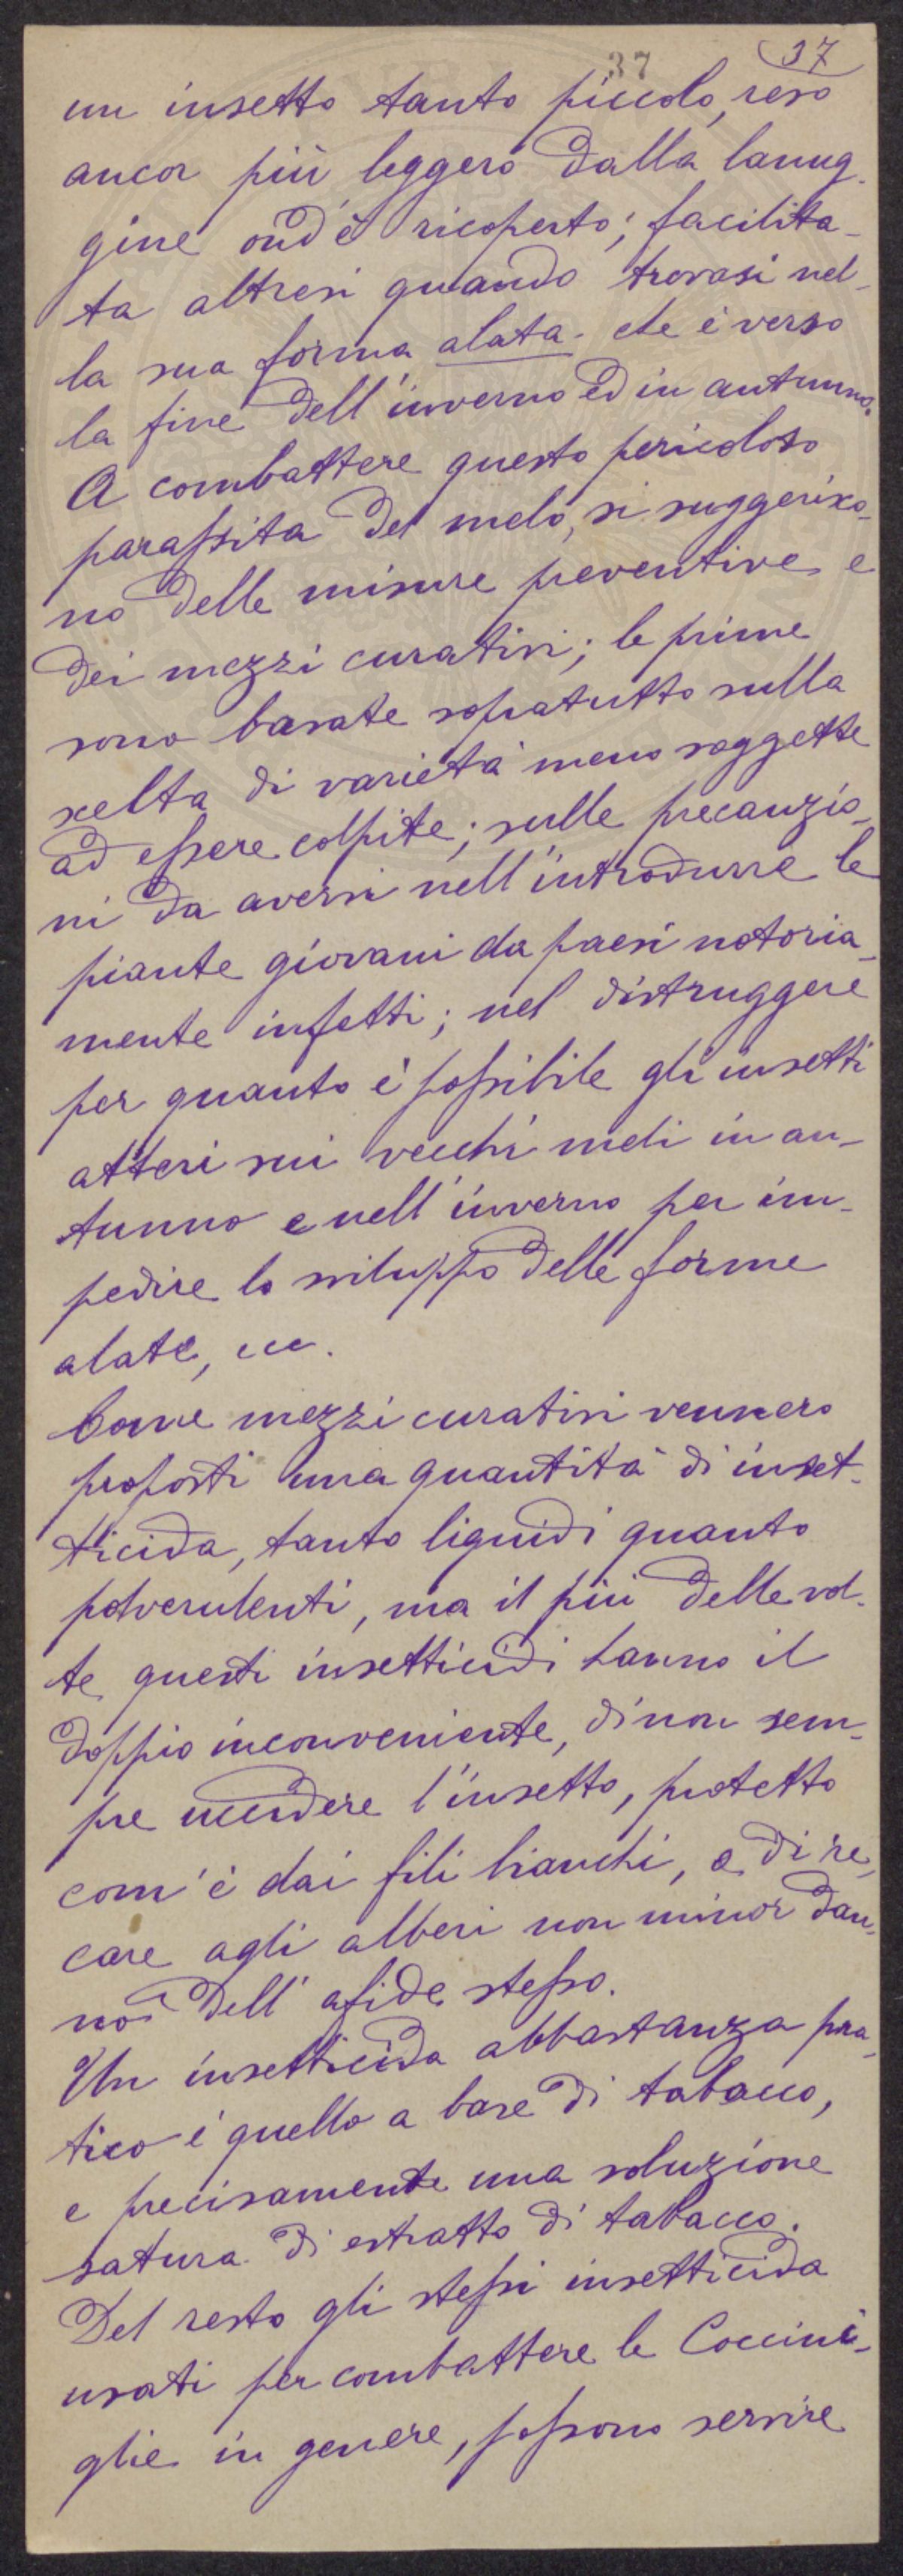 37 37
un insetto tanto piccolo, reso
ancor più leggero dalla lanug-
gine ond'è ricoperto; facilita-
ta altresì quando trovasi nel-
la sua forma alata. che è verso
la fine dell'inverno ed in autunno.
A combattere questo pericoloso
parassita del melo, si suggerisco-
no delle misure preventive e
dei mezzi curativi; le prime
sono basate sopratutto sulla
scelta di varietà meno soggette
ad essere colpite; sulle precauzio-
ni da aversi nell'introdurre le
piante giovani da paesi notoria-
mente infetti; nel distruggere
per quanto è possibile gli insetti
atteri sui vecchi meli in au-
tunno e nell'inverno per im-
pedire lo sviluppo delle forme
alate, ecc.
Come mezzi curativi vennero
proposti una quantità di inset-
ticida, tanto liquidi quanto
polverulenti, ma il più delle vol-
te questi insetticidi hanno il
doppio inconveniente, di non sem-
pre uccidere l'insetto, protetto
com'è dai fili bianchi, e di re-
care agli alberi non minor dan-
no dell'afide stesso.
Un insetticida abbastanza pra-
tico è quello a base di tabacco,
e precisamente una soluzione
satura di estratto di tabacco.
Del resto gli stessi insetticida
usati per combattere le Coccini-
glie in genere, possono servire